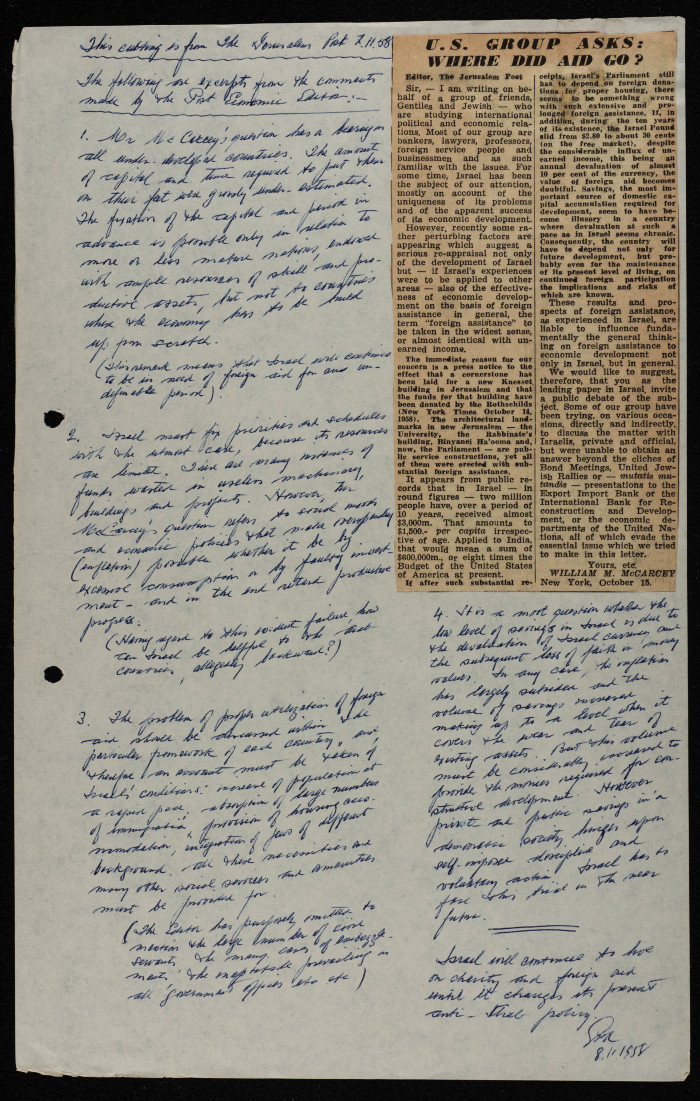 This cutting is from The Jerusalem Post 7.11.58
The following are excerpts from the comments
made by the Post Economic Editor:-
1. Mr Mc Carcey's question has a bearing on
all under-developed countries. The amount
of capital and time required to put them
on their feet were grossly under-estimated.
The fixation of the capital and period in
advance is possible only in relation to
more or less mature nations, endowed
with ample resources of skill and pro-
ductive assets, but not to countries
where the economy has to be build
up from scratch.
(This remark means that Israel will continue
to be in need of foreign aid for an un-
definable period).
2. Israel must fix priorities and schedules
with the utmost care, because its resources
are limited. There are many instances of
funds wasted in useless machinery,
buildings and projects. However, the
McCarcey's question refers to social moods
and economic policies that make overspending
(inflation) possible whether it be by
excessive consumption or by faulty invest-
ment - and in the end retard productive
progress.
(Having regard to this evident failure how
can Israel be helpful to the
countries, allegedly backward?)
3. The problem of proper utilization of foreign
aid should be discussed within the
particular framework of each country, and
therefore an account must be taken of
Israel's conditions: increase of population at
a rapid pace, absorption of large numbers
of immigration, provision of housing acco-
mmodation, integration of Jews of different
background. All these necessities and
many other social services and amenities
must be provided for.
(The Editor has purposely omitted to
mention the large number of civil
servants, the many cases of embezzle-
ments, the ineptitude prevailing in
all government offices etc etc)
U.S. GROUP ASKS:
WHERE DID AID GO?
Editor, The Jerusalem Post
Sir, — I am writing on be-
half of a group of friends,
Gentiles and Jewish — who
are studying international
political and economic rela-
tions. Most of our group are
bankers, lawyers, professors,
foreign service people and
businessmen and as such
familiar with the issues. For
some time, Israel has been
the subject of our attention,
mostly on account of the
uniqueness of its problems
and of the apparent success
of its economic development.
However, recently some ra-
ther perturbing factors are
appearing which suggest a
serious re-appraisal not only
of the development of Israel
but — if Israel's experiences
were to be applied to other
areas — also of the effective-
ness of economic develop-
ment on the basis of foreign
assistance in general, the
term "foreign assistance" to
be taken in the widest sense,
or almost identical with un-
earned income.
The immediate reason for our
concern is a press notice to the
effect that a cornerstone has
been laid for a new Knesset
building in Jerusalem and that
the funds for that building have
been donated by the Rothschilds
(New York Times October 14,
1958). The architectural land-
marks in new Jerusalem — the
University, the Rabbinate's
building, Binyanei Ha'ooma and,
now, the Parliament — are pub-
lic service constructions, yet all
of them were erected with sub-
stantial foreign assistance.
It appears from public re-
cords that in Israel — in
round figures — two million
people have, over a period of
10 years, received almost
$3,000m. That amounts to
$1,500.- per capita irrespec-
tive of age. Applied to India,
that would mean a sum of
$600,000m., or eight times the
Budget of the United States
of America at present.
If after such substantial re-
ceipts, Israel's Parliament still
has to depend on foreign dona-
tions for proper housing, there
seems to be something wrong
with such extensive and pro-
longed foreign assistance. If, in
addition, during the ten years
of its existence, the Israel Pound
slid from $2.80 to about 30 cents
(on the free market), despite
the considerable influx of un-
earned income, this being an
annual devaluation of almost
10 per cent of the currency, the
value of foreign aid becomes
doubtful. Savings, the most im-
portant source of domestic ca-
pital accumulation required for
development, seem to have be-
come illusory in a country
where devaluation at such a
pace as in Israel seems chronic.
Consequently, the country will
have to depend not only for
future development, but pro-
bably even for the maintenance
of its present level of living, on
continued foreign participation
the implications and risks of
which are known.
These results and pro-
spects of foreign assistance,
as experienced in Israel, are
liable to influence funda-
mentally the general think-
ing on foreign assistance to
economic development not
only in Israel, but in general.
We would like to suggest,
therefore, that you as the
leading paper in Israel, invite
a public debate of the sub-
ject. Some of our group have
been trying, on various occa-
sions, directly and indirectly,
to discuss the matter with
Israelis, private and official,
but were unable to obtain an
answer beyond the cliches of
Bond Meetings, United Jew-
ish Rallies or — mutatis mu-
tandis — presentations to the
Export Import Bank or the
International Bank for Re-
construction and Develop-
ment, or the economic de-
partments of the United Na-
tions, all of which evade the
essential issue which we tried
to make in this letter.
Yours, etc.
WILLIAM M. McCARCEY
New York, October 15.
4. It is a moot question whether the
low level of savings in Israel is due to
the devaluation of Israel currency and
the subsequent loss of faith in money
values. In any case, the inflation
has largely subsided and the
volume of savings increased
making up to a level when it
covers the wear and tear of
existing assets. But this volume
must be considerably increased to
provide the monies required for con-
structive development. However
private and public savings in a
democratic society hinges upon
self-imposed discipline and
voluntary action. Israel has to
face this trial in the near
future.
Israel will continue to live
on charity and foreign aid
until it changes its present
anti- policy.
8.11.1958